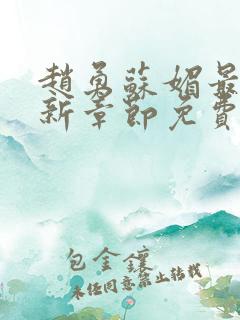 趙勇蘇媚最
新章節免費
包金鑲
未經同意禁止轉載